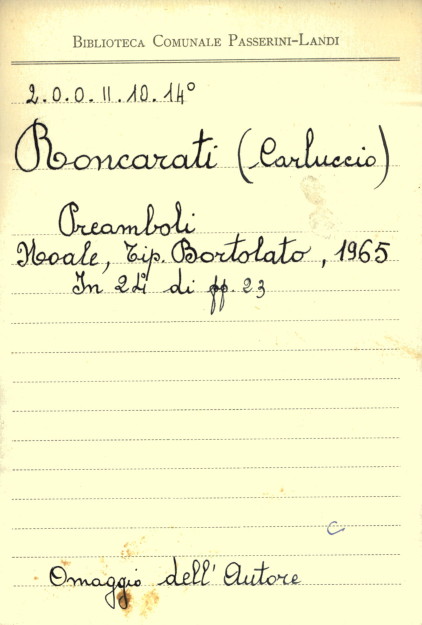 BIBLIOTECA COMUNALE PASSERINI-LANDI
2.0.0.II.10.14°
Roncarati (Carluccio)
Preamboli
Noale, Tip. Bortolato, 1965
In 24° di pp. 23
C
Omaggio dell'Autore